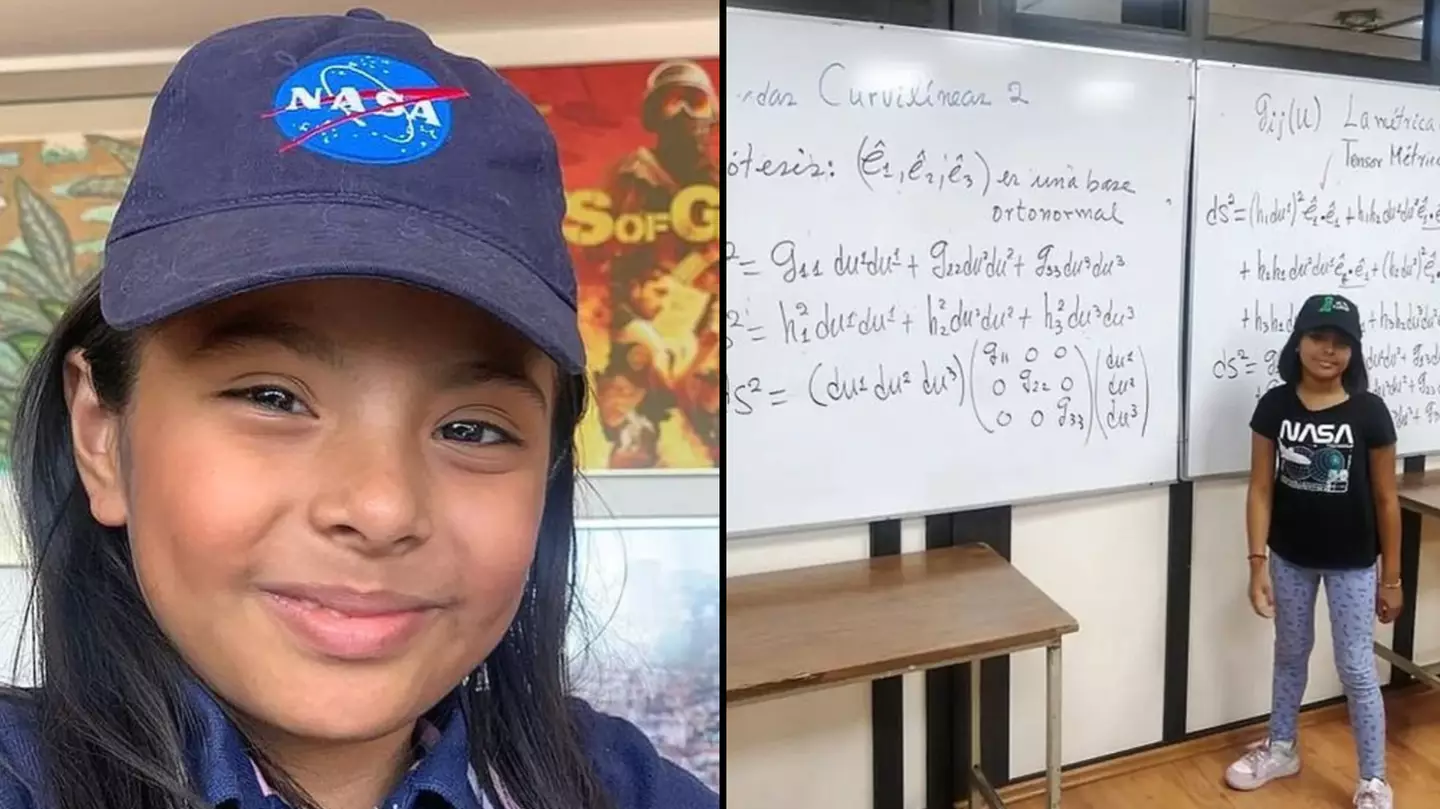 NASA
S OF G
Curvilíneas 2
ótesis: (ê₁, ê₂, ê₃) es una base
ortonormal
² = g₁₁ du¹du¹ + g₂₂ du²du² + g₃₃ du³du³
² = h₁² du¹du¹ + h₂² du²du² + h₃² du³du³
ds² = (du¹ du² du³) (g₁₁ 0 0) (du¹)
0 g₂₂ 0 du²
0 0 g₃₃ du³
gᵢⱼ(u) La métrica
Tensor Métric
ds² = (h₁du¹)² ê₁·ê₁ + h₁h₂du¹du² ê₁·ê
+ h₂h₁du²du¹ ê₂·ê₁ + (h₂du²)² ê₂
+ h₃h₁
ds² = g
NASA